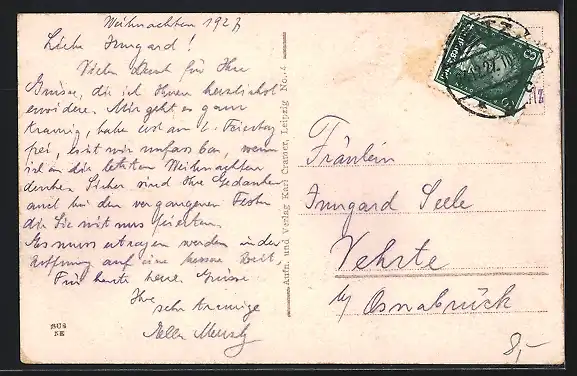 Weihnachten 1927
Liebe Irmgard!
Vielen Dank für Ihre
Grüsse, die ich Ihnen herzlichst
erwidere. Mir geht es ganz
traurig, habe erst am 2. Feiertag
frei, es ist mir unfassbar, wenn
ich an die letzten Weihnachten
denke. Sicher sind Ihre Gedanken
auch bei den vergangenen Festen
die Sie mit uns feierten.
Es muss ertragen werden in der
Hoffnung auf eine bessere Zeit.
Für heute Grüsse
Ihre
sehr traurige
BUS
NE
Aufn. und Verlag Karl Cramer, Leipzig No. 4
Fräulein
Irmgard Seele
Vehrte
by Osnabrück
8,-